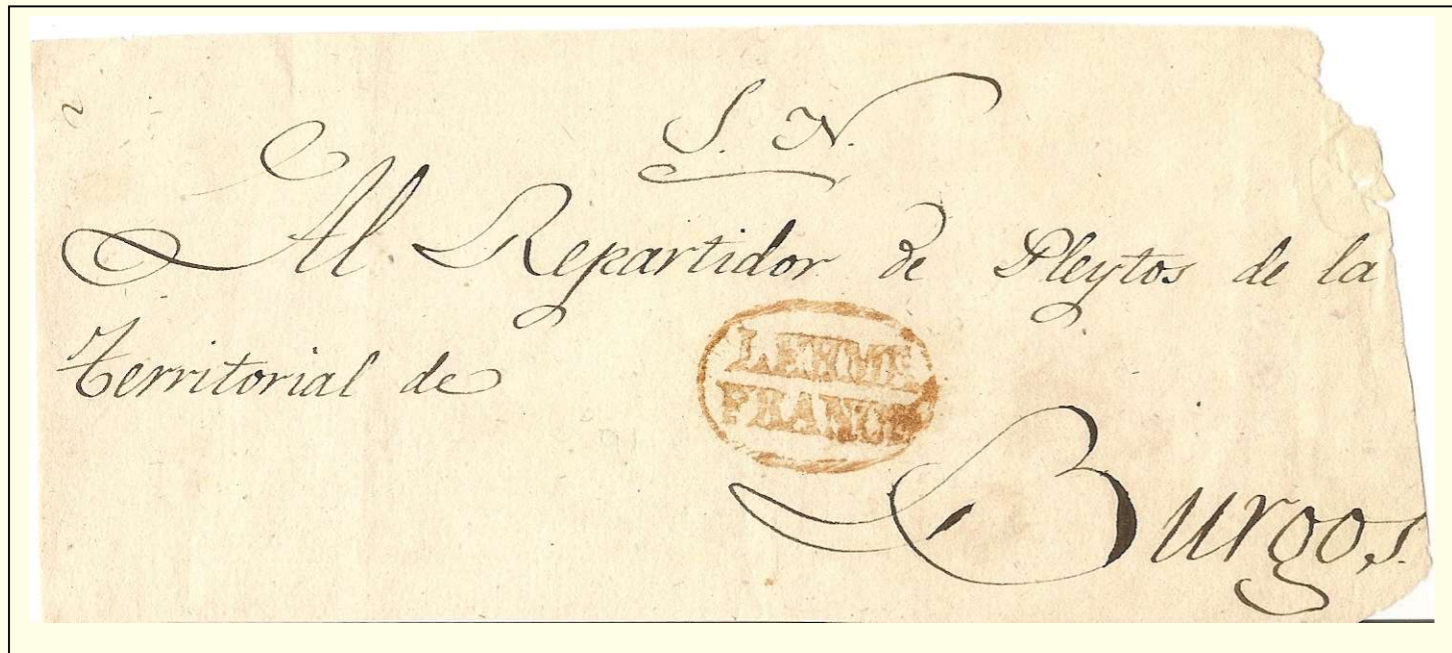 S. N.
Al Repartidor de Pleytos de la
Territorial de
LERMA
FRANCO
Burgos.